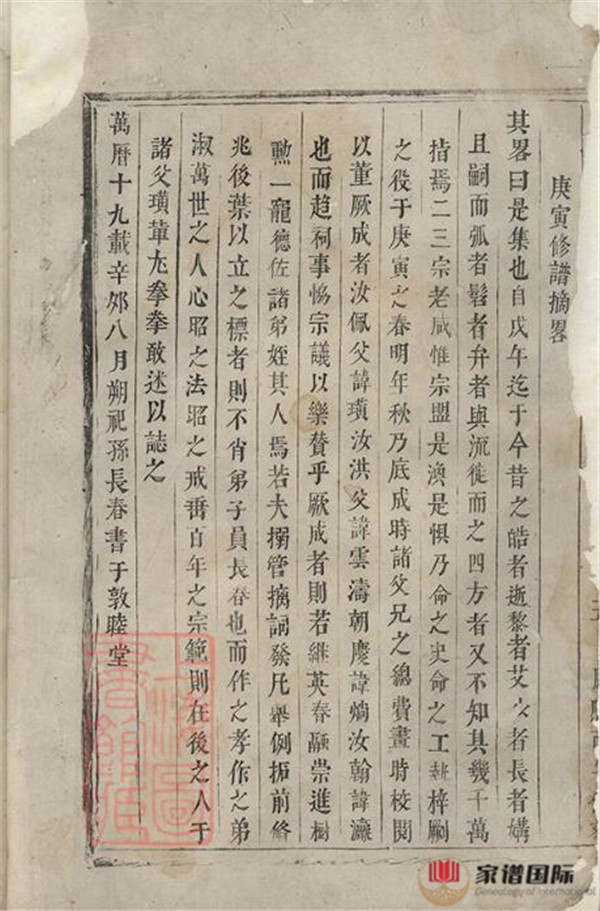 庚寅修譜摘畧
其畧曰是集也自戊午迄于今昔之皓者逝黎者艾少者長者媾
且嗣而孤者髫者弁者與流徙而之四方者又不知其幾千萬
指焉二三宗老咸惟宗盟是渙是惧乃命之史命之工耕梓劂
之役于庚寅之春明年秋乃底成時諸父兄之總費畫時校閱
以董厥成者汝佩父諱璜汝洪父諱雲濤朝慶諱熵汝翰諱瀛
也而趋祠事恊宗議以樂賛乎厥成者則若継英春融崇進樹
勲一寵德佐諸弟姪其人焉若夫搦管摛詞發凡舉例振前脩
兆後葉以立之標者則不肖弟子員長春也而作之孝作之弟
淑萬世之人心昭之法昭之戒垂百年之宗範則在後之人于
諸父璜軰尤拳拳敢述以誌之
萬曆十九載辛夘八月朔祀孫長春書于敦睦堂
家谱国际
Genealogy of International